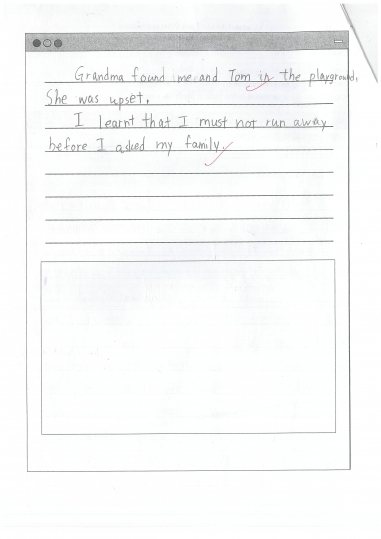 Grandma found me and Tom in the playground.
She was upset.
I learnt that I must not run away
before I asked my family.